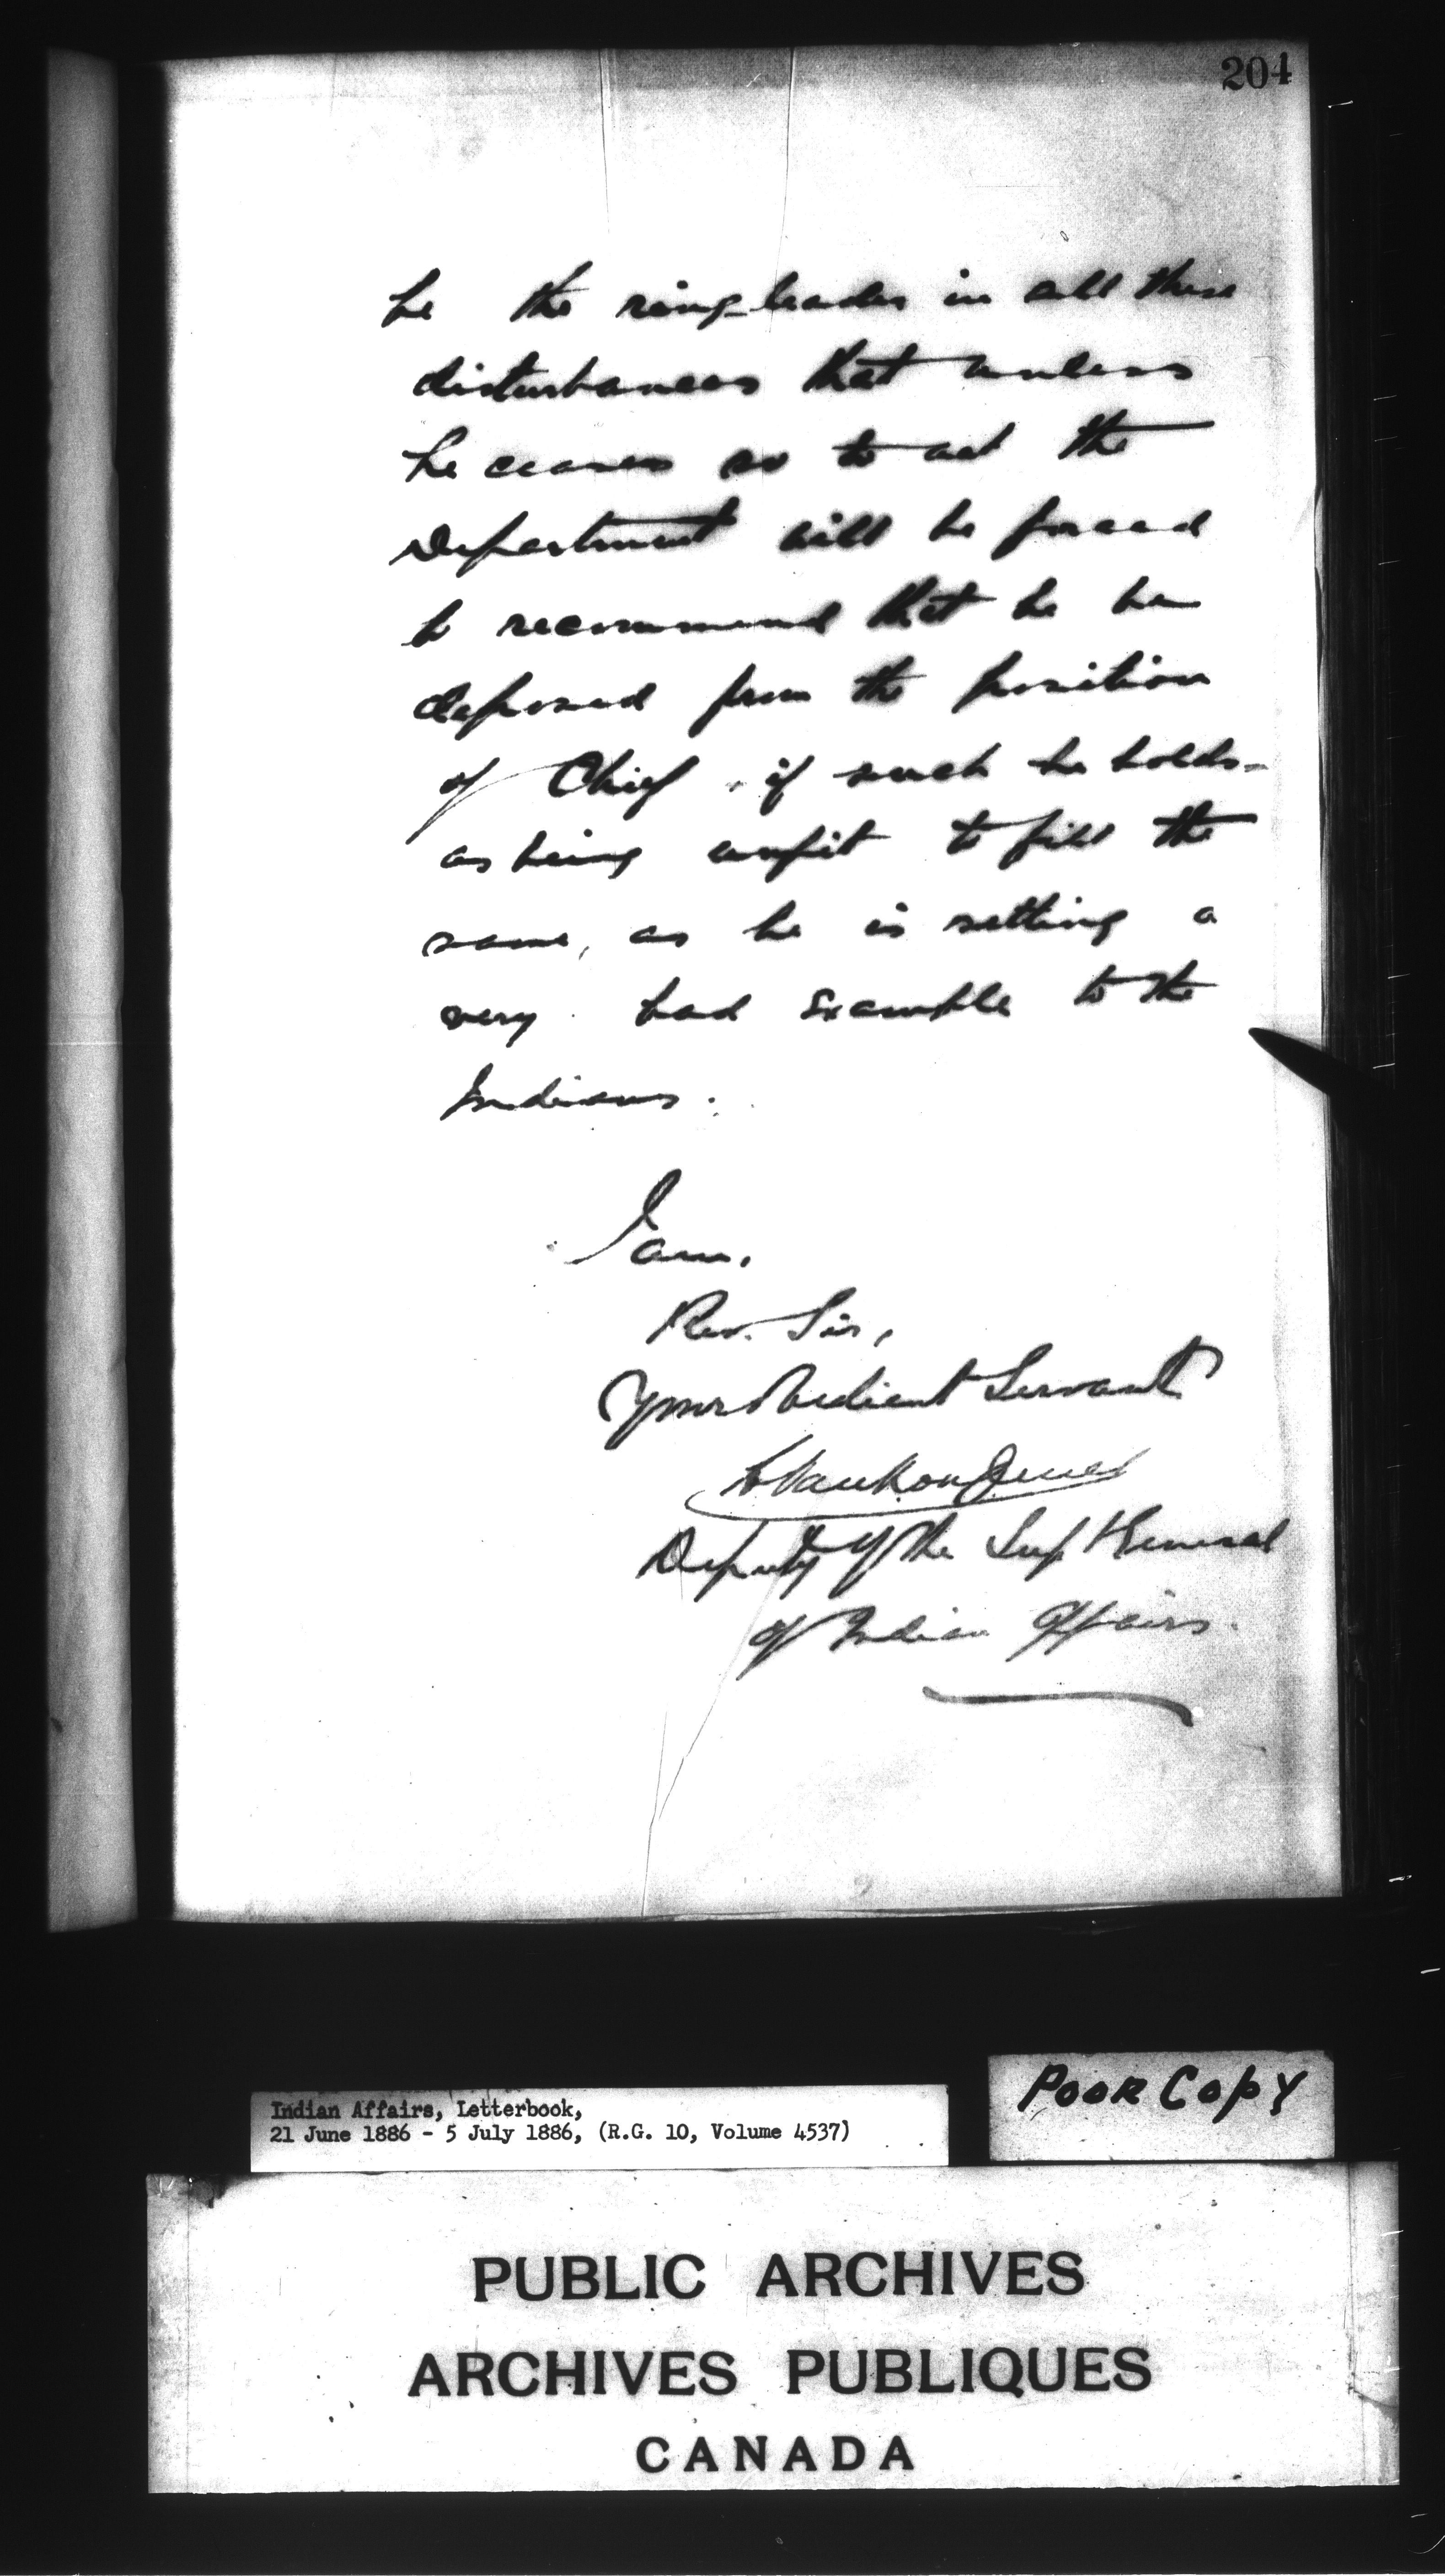 204
be the ring-leader in all these
disturbances that unless
he ceases so to act the
Department will be forced
to recommend that he be
deposed from the position
of Chief, if such he holds-
as being unfit to fill the
same, as he is setting a
very bad Example to the
Indians.
I am,
Rev. Sir,
Your obedient Servant
L VanKoughnet
Deputy of the Supt General
of Indian Affairs.
Indian Affairs, Letterbook,
21 June 1886 - 5 July 1886, (R.G. 10, Volume 4537)
POOR COPY
PUBLIC ARCHIVES
ARCHIVES PUBLIQUES
CANADA